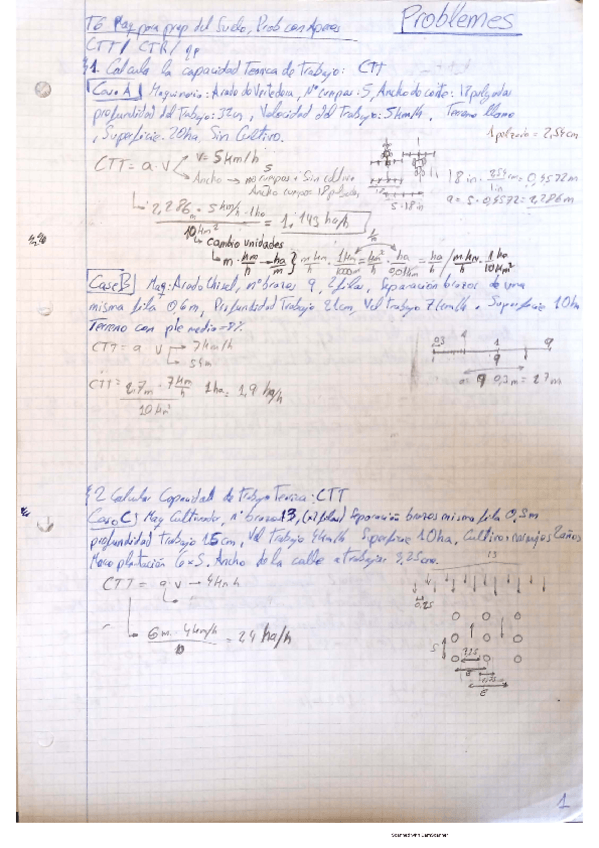 Problemes
T6 Maq para prep del Suelo, Prob con Aperos
CTT / CTR /
§1. Calcula la capacidad Teorica de Trabajo: CTT
Caso A Maquinaria: Arado de Vertedera, Nº cuerpos: 5, Ancho de corte: 18 pulgadas
profundidad del Trabajo: 32cm, Velocidad del Trabajo: 5km/h, Terreno llano
, Superficie: 20ha, Sin Cultivo.
1 pulzada = 2,54cm
CTT = a · V
V = 5km/h
Ancho → nº5 cuerpos + Sin cultivo
Ancho cuerpos 18 pulgadas
18 in · 2,54cm / 1in = 0,4572m
a = 5 · 0,4572 = 2,286m
5 · 18in
2,286m · 5 km/h · 1ha / 10 = 1,143 ha/h
cambio unidades
m · km/h → ha/h } m km/h · 1km/1000m = km²/h · ha/0,01km² = ha/h / m·km/h · 1ha/10
Caso B Maq: Arado Chisel, nº brazos 9, 2 filas, Separación brazos de una
misma fila 0,6m, Profundidad Trabajo 21cm, Vel Trabajo 7km/h, Superficie 10ha
Terreno con pte media = 8%
CTT = a · V → 7km/h
0,3
1
9
9 · 0,3m = 2,7m
CTT = 2,7m · 7km/h / 10 · 1ha = 1,9 ha/h
§2 Calcular Capacidad de Trabajo Teorica: CTT
Caso C) Maq Cultivador, nº brazos 13, (2 filas) Separación brazos misma fila 0,5m
profundidad Trabajo 15cm, Vel Trabajo 4km/h Superficie 10ha, Cultivo: naranjos 2años
Marco plantación 6x5. Ancho de la calle a trabajar 3,25
13
CTT = a · V → 4km/h
0,25
6m · 4km/h / 10 = 2,4 ha/h
5
3,25
6
6
1
Scanned with CamScanner